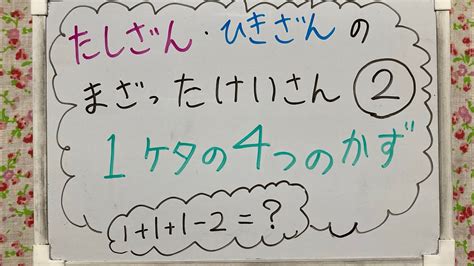 たしざん・ひきざんの
まざったけいさん②
1ケタの4つのかず
1+1+1-2=?